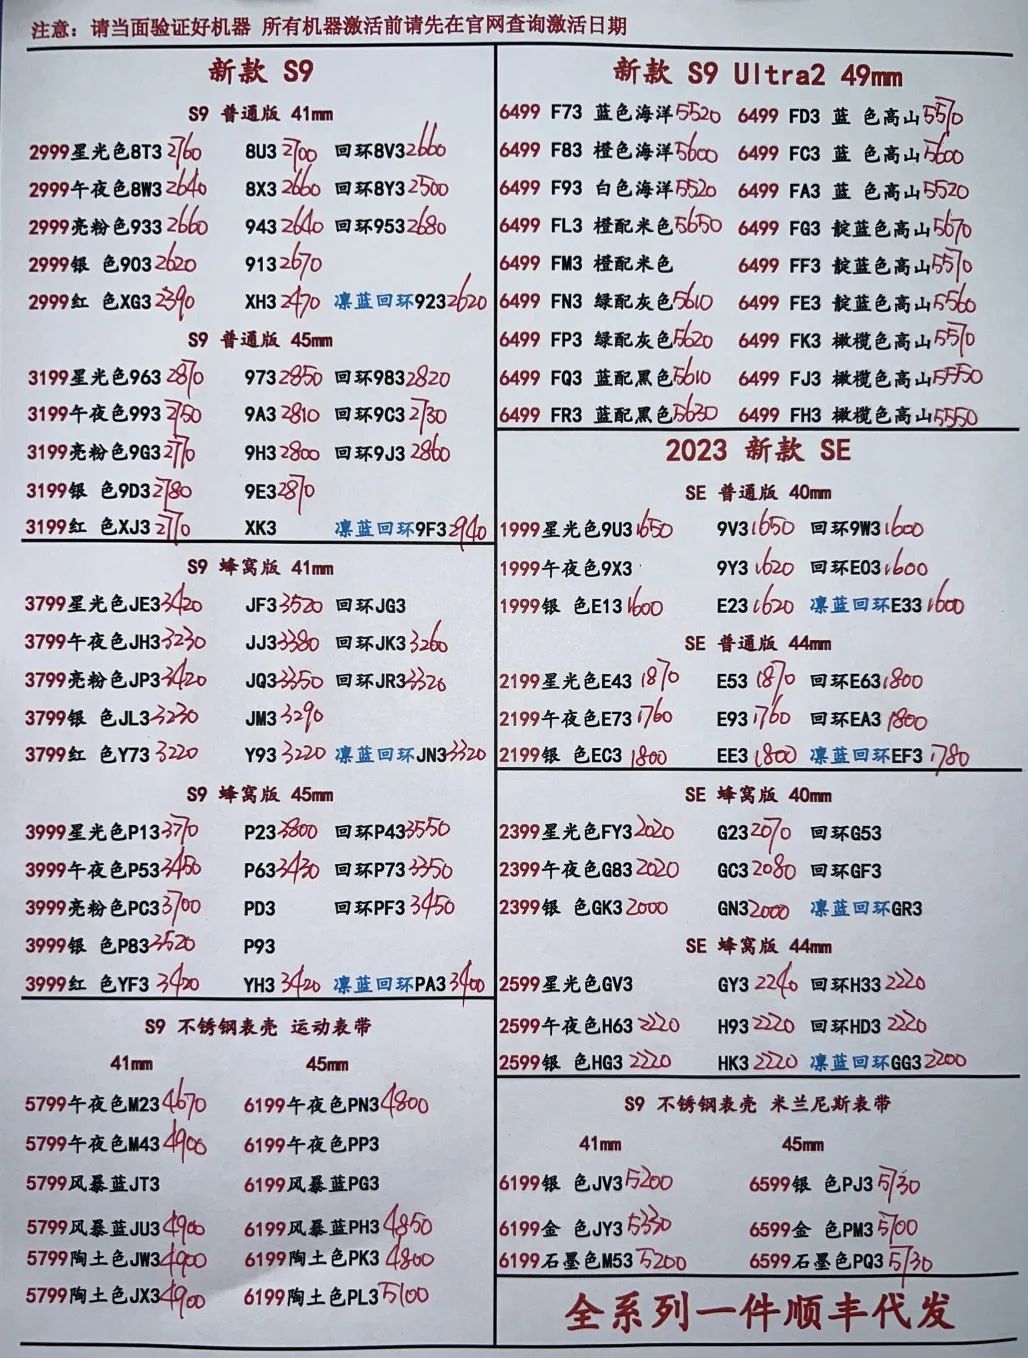 注意：请当面验证好机器 所有机器激活前请先在官网查询激活日期
新款 S9
S9 普通版 41mm
2999星光色8T3 2760 8U3 2700 回环8V3 2660
2999午夜色8W3 2640 8X3 2660 回环8Y3 2500
2999亮粉色933 2660 943 2640 回环953 2680
2999银 色903 2620 913 2670
2999红 色XG3 2390 XH3 2470 凛蓝回环923 2620
S9 普通版 45mm
3199星光色963 2870 973 2850 回环983 2820
3199午夜色993 2750 9A3 2810 回环9C3 2730
3199亮粉色9G3 2770 9H3 2800 回环9J3 2860
3199银 色9D3 2780 9E3 2870
3199红 色XJ3 2770 XK3 凛蓝回环9F3 2940
S9 蜂窝版 41mm
3799星光色JE3 3420 JF3 3520 回环JG3
3799午夜色JH3 3230 JJ3 3380 回环JK3 3260
3799亮粉色JP3 3420 JQ3 3350 回环JR3 3320
3799银 色JL3 3230 JM3 3290
3799红 色Y73 3220 Y93 3220 凛蓝回环JN3 3320
S9 蜂窝版 45mm
3999星光色P13 3770 P23 3800 回环P43 3550
3999午夜色P53 3450 P63 3430 回环P73 3350
3999亮粉色PC3 3700 PD3 回环PF3 3450
3999银 色P83 3520 P93
3999红 色YF3 3420 YH3 3420 凛蓝回环PA3 3400
S9 不锈钢表壳 运动表带
41mm 45mm
5799午夜色M23 4670 6199午夜色PN3 4800
5799午夜色M43 4900 6199午夜色PP3
5799风暴蓝JT3 6199风暴蓝PG3
5799风暴蓝JU3 4900 6199风暴蓝PH3 4850
5799陶土色JW3 4900 6199陶土色PK3 4800
5799陶土色JX3 4900 6199陶土色PL3 5100
新款 S9 Ultra2 49mm
6499 F73 蓝色海洋 5520 6499 FD3 蓝 色高山 5570
6499 F83 橙色海洋 5600 6499 FC3 蓝 色高山 5600
6499 F93 白色海洋 5520 6499 FA3 蓝 色高山 5520
6499 FL3 橙配米色 5650 6499 FG3 靛蓝色高山 5670
6499 FM3 橙配米色 6499 FF3 靛蓝色高山 5570
6499 FN3 绿配灰色 5610 6499 FE3 靛蓝色高山 5560
6499 FP3 绿配灰色 5620 6499 FK3 橄榄色高山 5570
6499 FQ3 蓝配黑色 5610 6499 FJ3 橄榄色高山 5550
6499 FR3 蓝配黑色 5630 6499 FH3 橄榄色高山 5550
2023 新款 SE
SE 普通版 40mm
1999星光色9U3 1650 9V3 1650 回环9W3 1600
1999午夜色9X3 9Y3 1620 回环E03 1600
1999银 色E13 1600 E23 1620 凛蓝回环E33 1600
SE 普通版 44mm
2199星光色E43 1870 E53 1870 回环E63 1800
2199午夜色E73 1760 E93 1760 回环EA3 1800
2199银 色EC3 1800 EE3 1800 凛蓝回环EF3 1780
SE 蜂窝版 40mm
2399星光色FY3 2020 G23 2070 回环G53
2399午夜色G83 2020 GC3 2080 回环GF3
2399银 色GK3 2000 GN3 2000 凛蓝回环GR3
SE 蜂窝版 44mm
2599星光色GV3 GY3 2240 回环H33 2220
2599午夜色H63 2220 H93 2220 回环HD3 2220
2599银 色HG3 2220 HK3 2220 凛蓝回环GG3 2200
S9 不锈钢表壳 米兰尼斯表带
41mm 45mm
6199银 色JV3 5200 6599银 色PJ3 5730
6199金 色JY3 5330 6599金 色PM3 5700
6199石墨色M53 5200 6599石墨色PQ3 5730
全系列一件顺丰代发